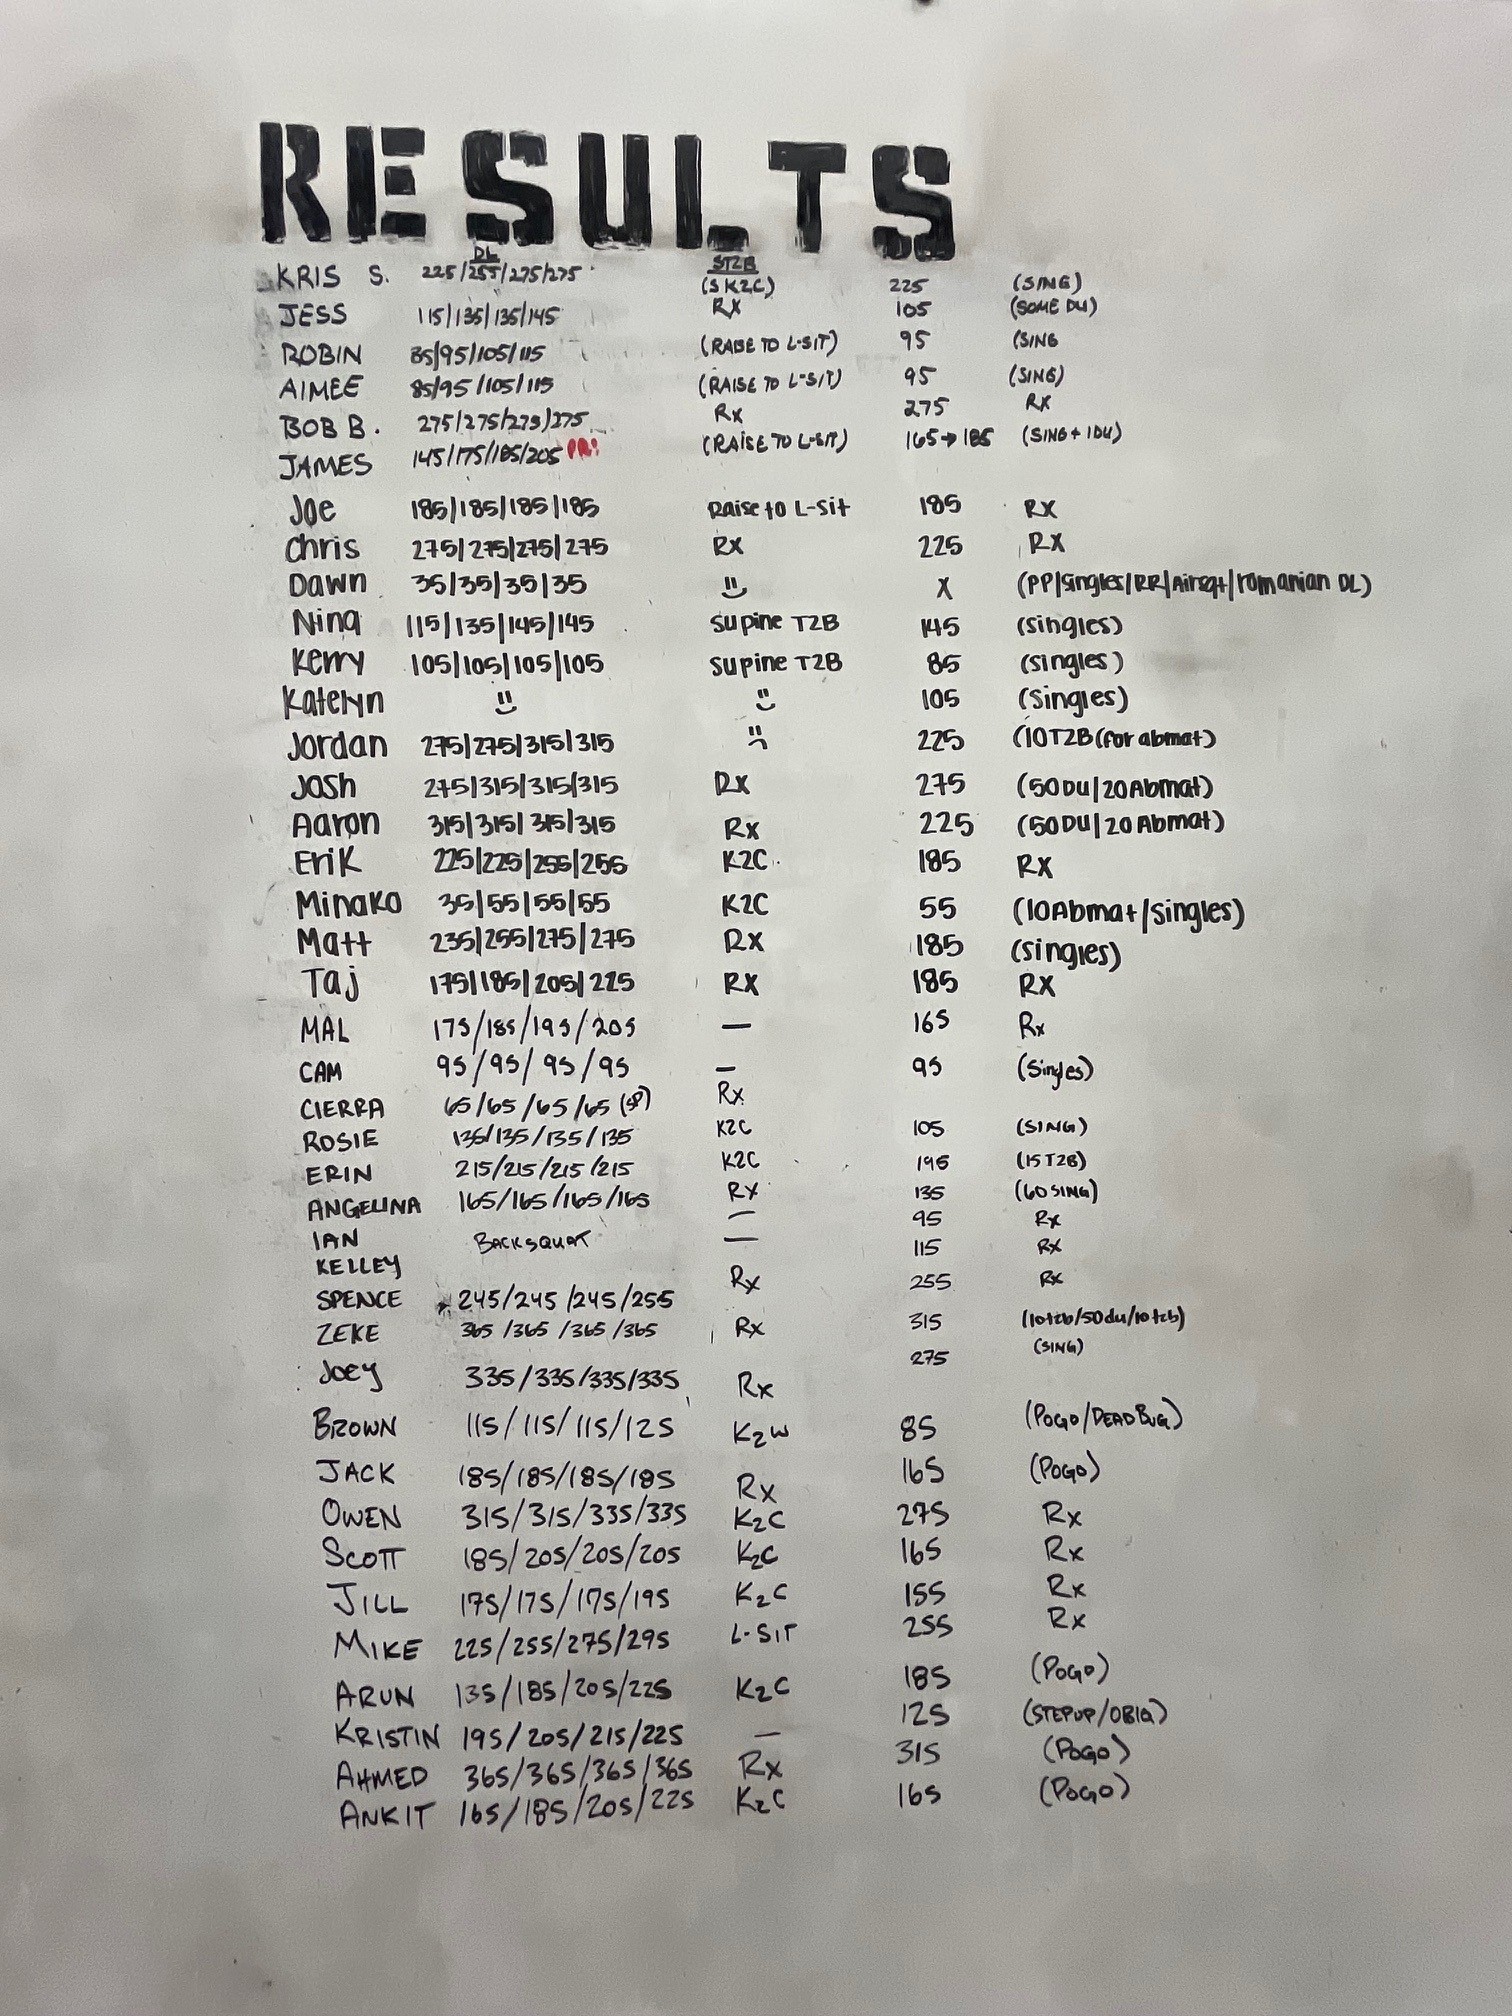 RESULTS
DL ST2B
KRIS S. 225/255/275/275 (SK2C) 225 (SING)
JESS 115/135/135/145 RX 105 (SOME DU)
ROBIN 85/95/105/115 (RAISE TO L-SIT) 95 (SING
AIMEE 85/95/105/115 (RAISE TO L-SIT) 95 (SING)
BOB B. 275/275/275/275 Rx 275 RX
JAMES 145/175/185/205 PR! (RAISE TO L-SIT) 165→185 (SING + 1DU)
Joe 185/185/185/185 Raise to L-Sit 185 RX
Chris 275/275/275/275 RX 225 RX
Dawn 35/35/35/35 X (PP/singles/RR/Airsqt/romanian DL)
Nina 115/135/145/145 Supine T2B 145 (singles)
Kerry 105/105/105/105 Supine T2B 85 (singles)
Katelyn 105 (Singles)
Jordan 275/275/315/315 225 (10T2B(for abmat)
Josh 275/315/315/315 RX 275 (50DU/20Abmat)
Aaron 315/315/315/315 Rx 225 (50DU/20Abmat)
Erik 225/225/255/255 K2C 185 RX
Minako 35/55/55/55 K2C 55 (10Abmat/Singles)
Matt 235/255/275/275 RX 185 (singles)
Taj 175/185/205/225 RX 185 RX
MAL 175/185/195/205 — 165 Rx
CAM 95/95/95/95 — 95 (Singles)
CIERRA 65/65/65/65 Rx
ROSIE 135/135/135/135 K2C 105 (SING)
ERIN 215/215/215/215 K2C 195 (15T2B)
ANGELINA 165/165/165/165 RX 135 (60 SING)
IAN BACKSQUAT — 95 Rx
KELLEY — 115 Rx
SPENCE 245/245/245/255 Rx 255 Rx
ZEKE 365/365/365/365 Rx 315 (10t2b/50du/10t2b)
Joey 335/335/335/335 Rx 275 (SING)
BROWN 115/115/115/125 K2W 85 (POGO/DEADBUG)
JACK 185/185/185/185 Rx 165 (POGO)
OWEN 315/315/335/335 K2C 275 Rx
SCOTT 185/205/205/205 K2C 165 Rx
JILL 175/175/175/195 K2C 155 Rx
MIKE 225/255/275/295 L-SIT 255 Rx
ARUN 135/185/205/225 K2C 185 (POGO)
KRISTIN 195/205/215/225 — 125 (STEPUP/OBLQ)
AHMED 365/365/365/365 Rx 315 (POGO)
ANKIT 165/185/205/225 K2C 165 (POGO)